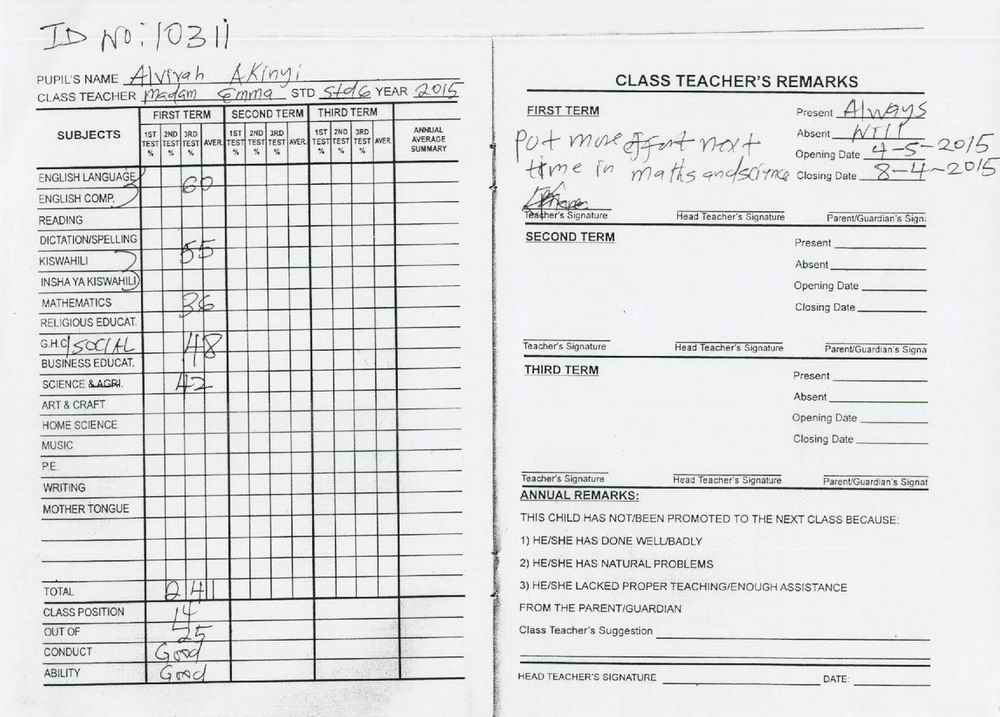 ID NO: 10311
PUPIL'S NAME Alviyah Akinyi
CLASS TEACHER Madam Emma STD Std 6 YEAR 2015
SUBJECTS
FIRST TERM SECOND TERM THIRD TERM
1ST TEST % 2ND TEST % 3RD TEST % AVER. 1ST TEST % 2ND TEST % 3RD TEST % AVER. 1ST TEST % 2ND TEST % 3RD TEST % AVER.
ANNUAL AVERAGE SUMMARY
ENGLISH LANGUAGE 60
ENGLISH COMP.
READING
DICTATION/SPELLING
KISWAHILI 55
INSHA YA KISWAHILI
MATHEMATICS 36
RELIGIOUS EDUCAT.
G.H.C/SOCIAL 48
BUSINESS EDUCAT.
SCIENCE & AGRI. 42
ART & CRAFT
HOME SCIENCE
MUSIC
P.E.
WRITING
MOTHER TONGUE
TOTAL 241
CLASS POSITION 14
OUT OF 25
CONDUCT Good
ABILITY Good
CLASS TEACHER'S REMARKS
FIRST TERM
Present Always
Absent Nill
Opening Date 4-5-2015
Closing Date 8-4-2015
Put more effort next
time in maths and science
Teacher's Signature Head Teacher's Signature Parent/Guardian's Sign:
SECOND TERM
Present
Absent
Opening Date
Closing Date
Teacher's Signature Head Teacher's Signature Parent/Guardian's Signa
THIRD TERM
Present
Absent
Opening Date
Closing Date
Teacher's Signature Head Teacher's Signature Parent/Guardian's Signat
ANNUAL REMARKS:
THIS CHILD HAS NOT/BEEN PROMOTED TO THE NEXT CLASS BECAUSE:
1) HE/SHE HAS DONE WELL/BADLY
2) HE/SHE HAS NATURAL PROBLEMS
3) HE/SHE LACKED PROPER TEACHING/ENOUGH ASSISTANCE
FROM THE PARENT/GUARDIAN
Class Teacher's Suggestion
HEAD TEACHER'S SIGNATURE DATE: